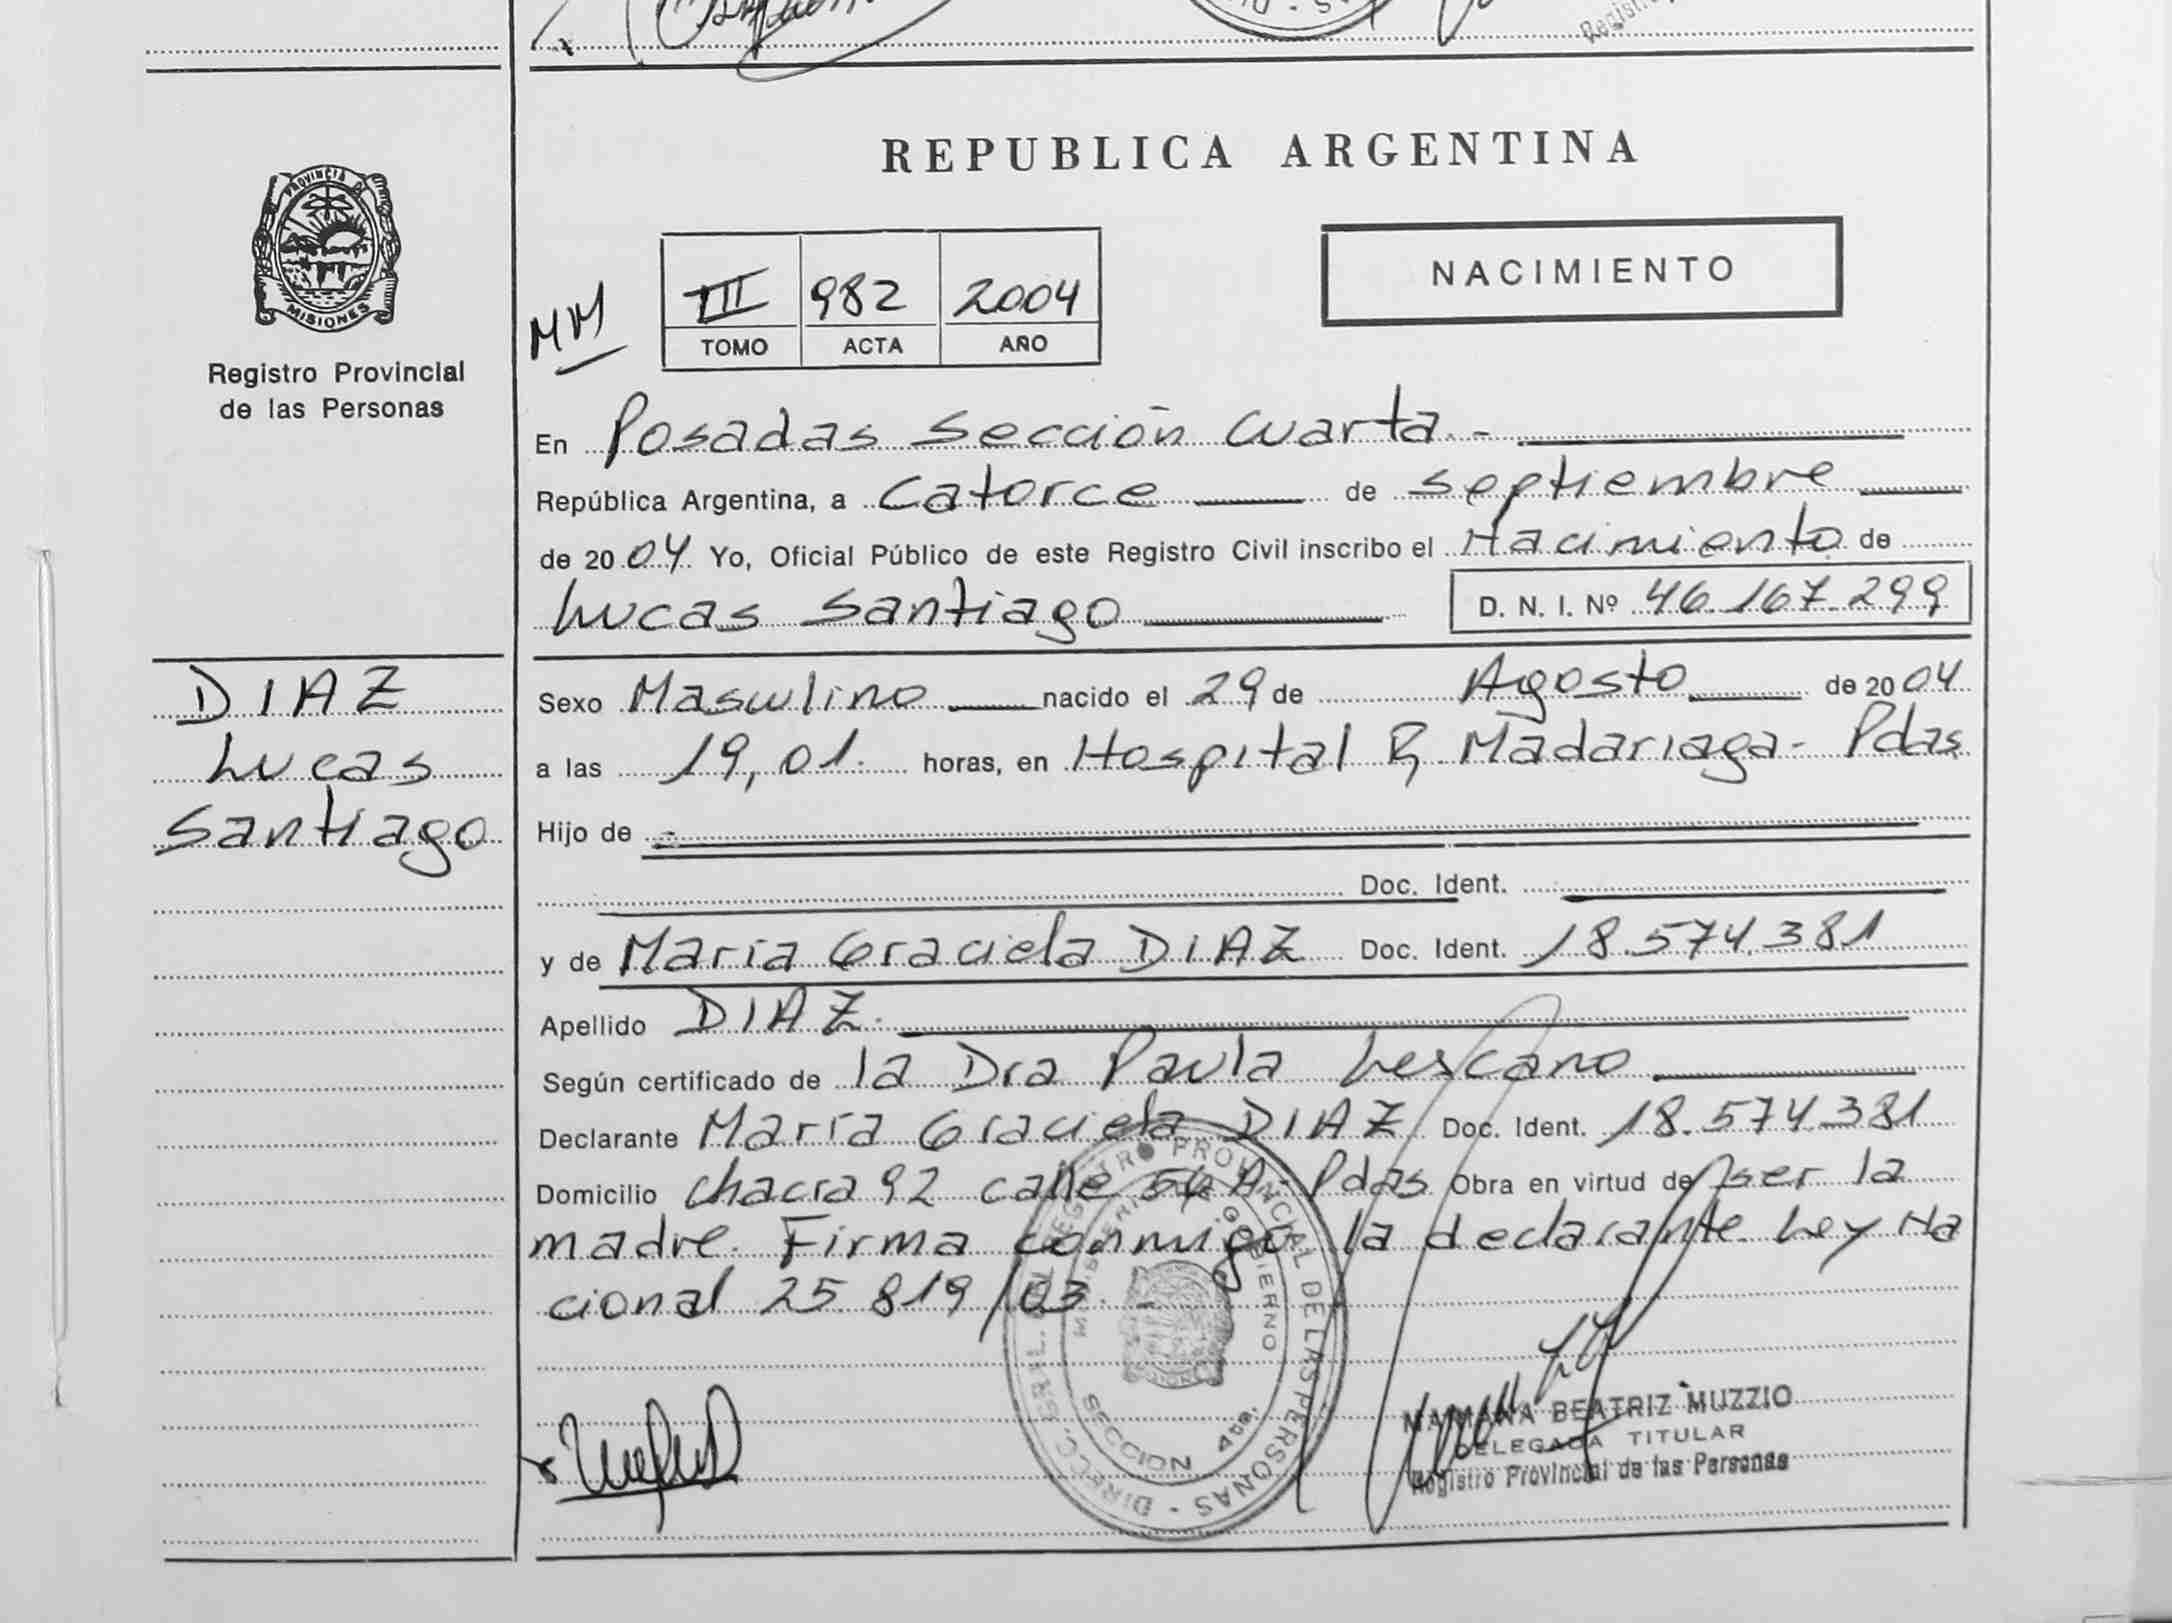 PROVINCIA DE
MISIONES
Registro Provincial
de las Personas
DIAZ
Lucas
Santiago
Registro
REPUBLICA ARGENTINA
NACIMIENTO
MM
III 982 2004
TOMO ACTA AÑO
En Posadas Sección Cuarta.-
República Argentina, a Catorce de septiembre
de 2004 Yo, Oficial Público de este Registro Civil inscribo el Nacimiento de
Lucas Santiago D. N. I. Nº 46.167.299
Sexo Masculino nacido el 29 de Agosto de 2004
a las 19,01. horas, en Hospital R. Madariaga- Pdas
Hijo de -
Doc. Ident.
y de María Graciela DIAZ Doc. Ident. 18.574.381
Apellido DIAZ.
Según certificado de la Dra Paula Lescano
Declarante María Graciela DIAZ Doc. Ident. 18.574.381
Domicilio chacra 92 calle 56 A- Pdas Obra en virtud de ser la
madre. Firma conmigo la declarante. Ley Na
cional 25 819/03.
DIRECC. GRAL. DEL REGISTRO PROVINCIAL DE LAS PERSONAS -
GOBIERNO
SECCION 4ta.
MARIANA BEATRIZ MUZZIO
DELEGADA TITULAR
Registro Provincial de las Personas